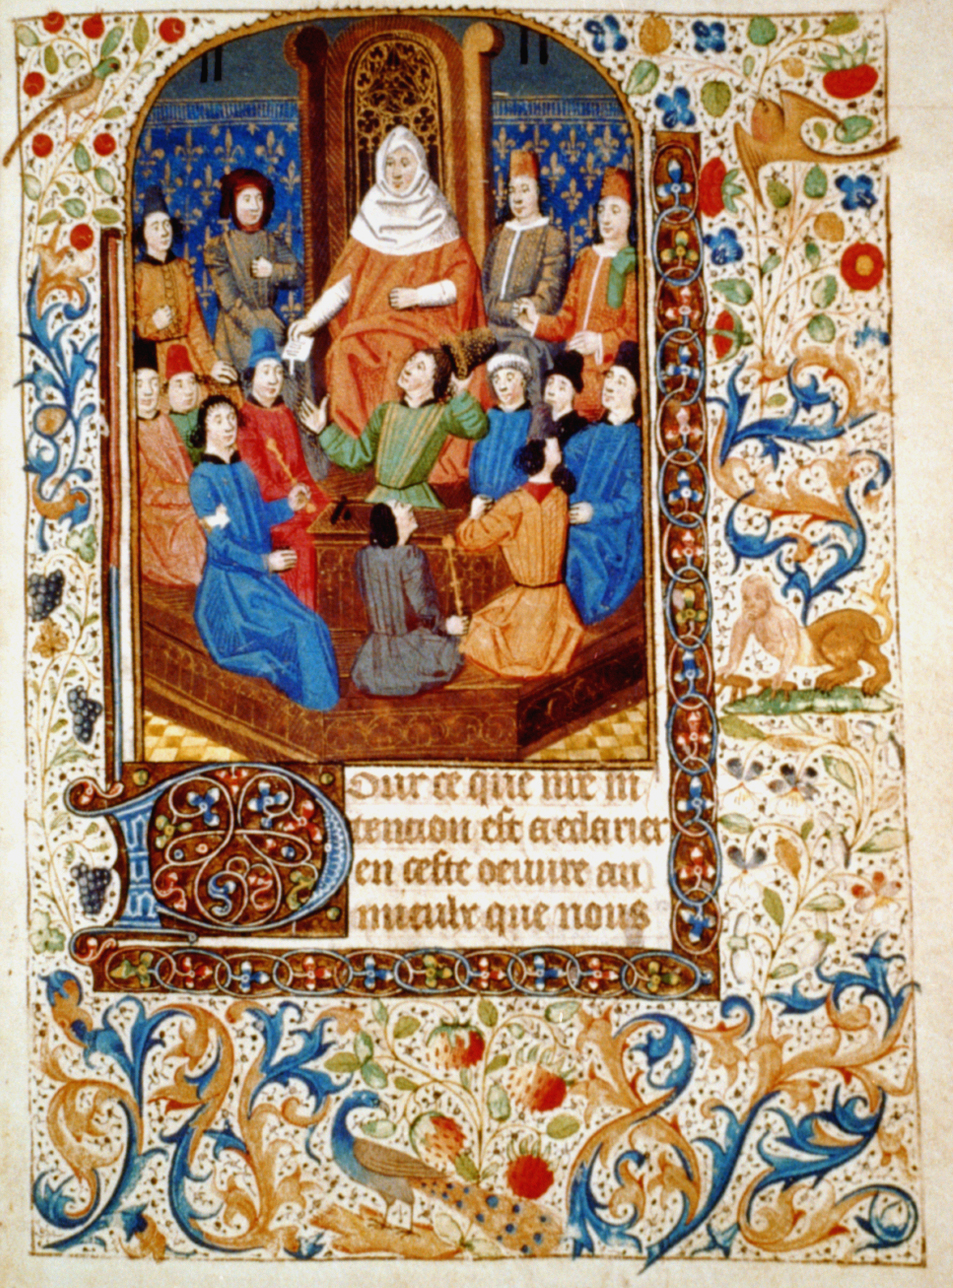 Pour ce que me in
tencion est declarier
en ceste oeuure au
que nous